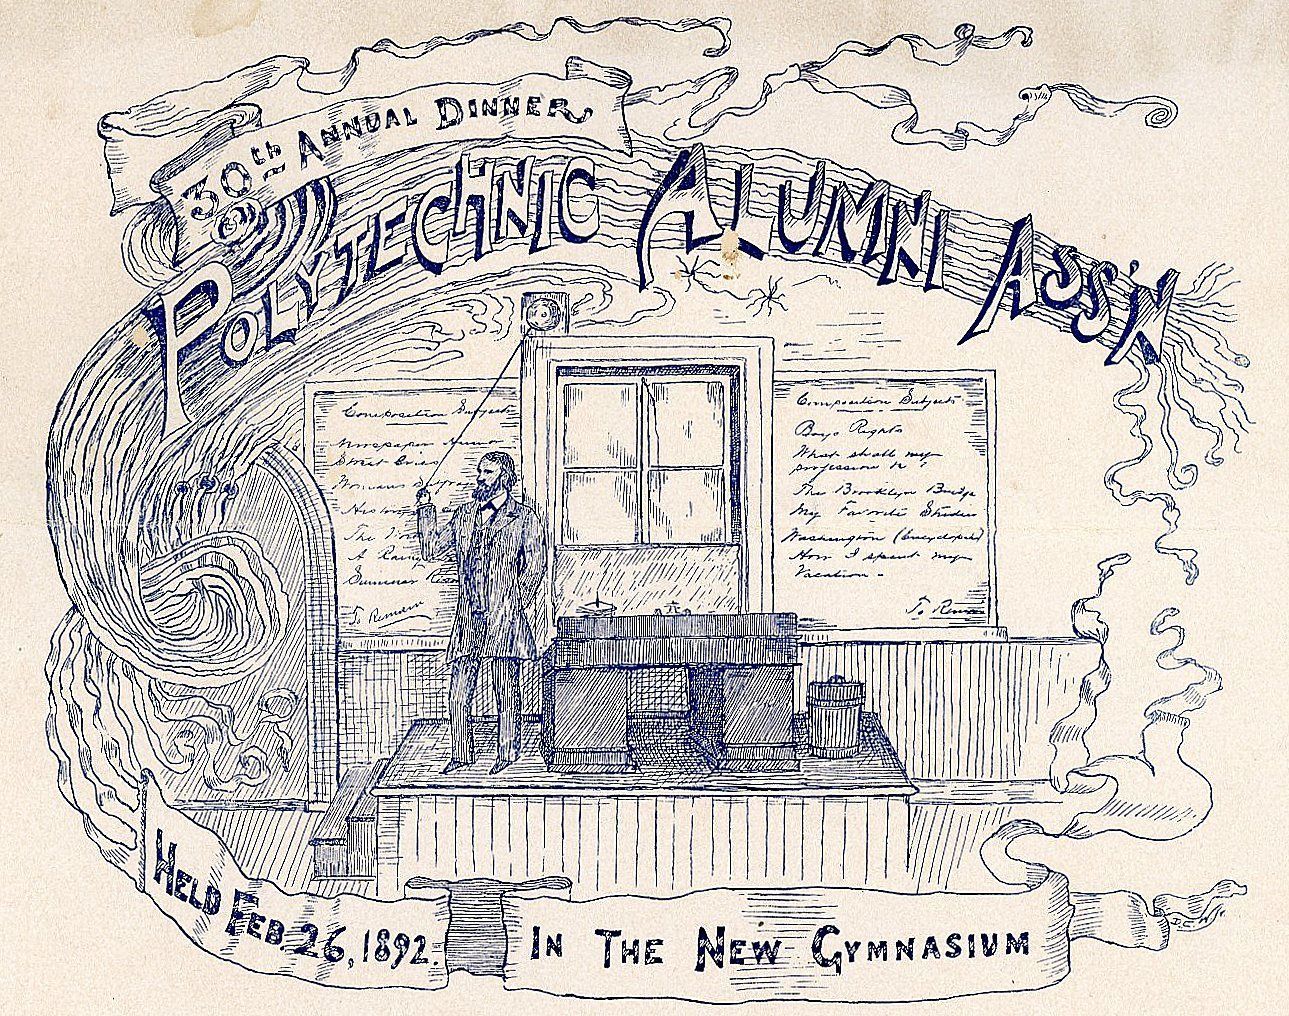 30th Annual Dinner
Polytechnic Alumni Ass'n
Composition Subjects
Newspaper
Street Cries
Womans
The
A
Summer
To Remain
Composition Subjects
Boys Rights
What shall my
profession be?
The Brooklyn Bridge
My Favorite Studies
Washington (Encyclopedia)
How I spent my
Vacation -
To Remain
Held Feb. 26, 1892.
In The New Gymnasium